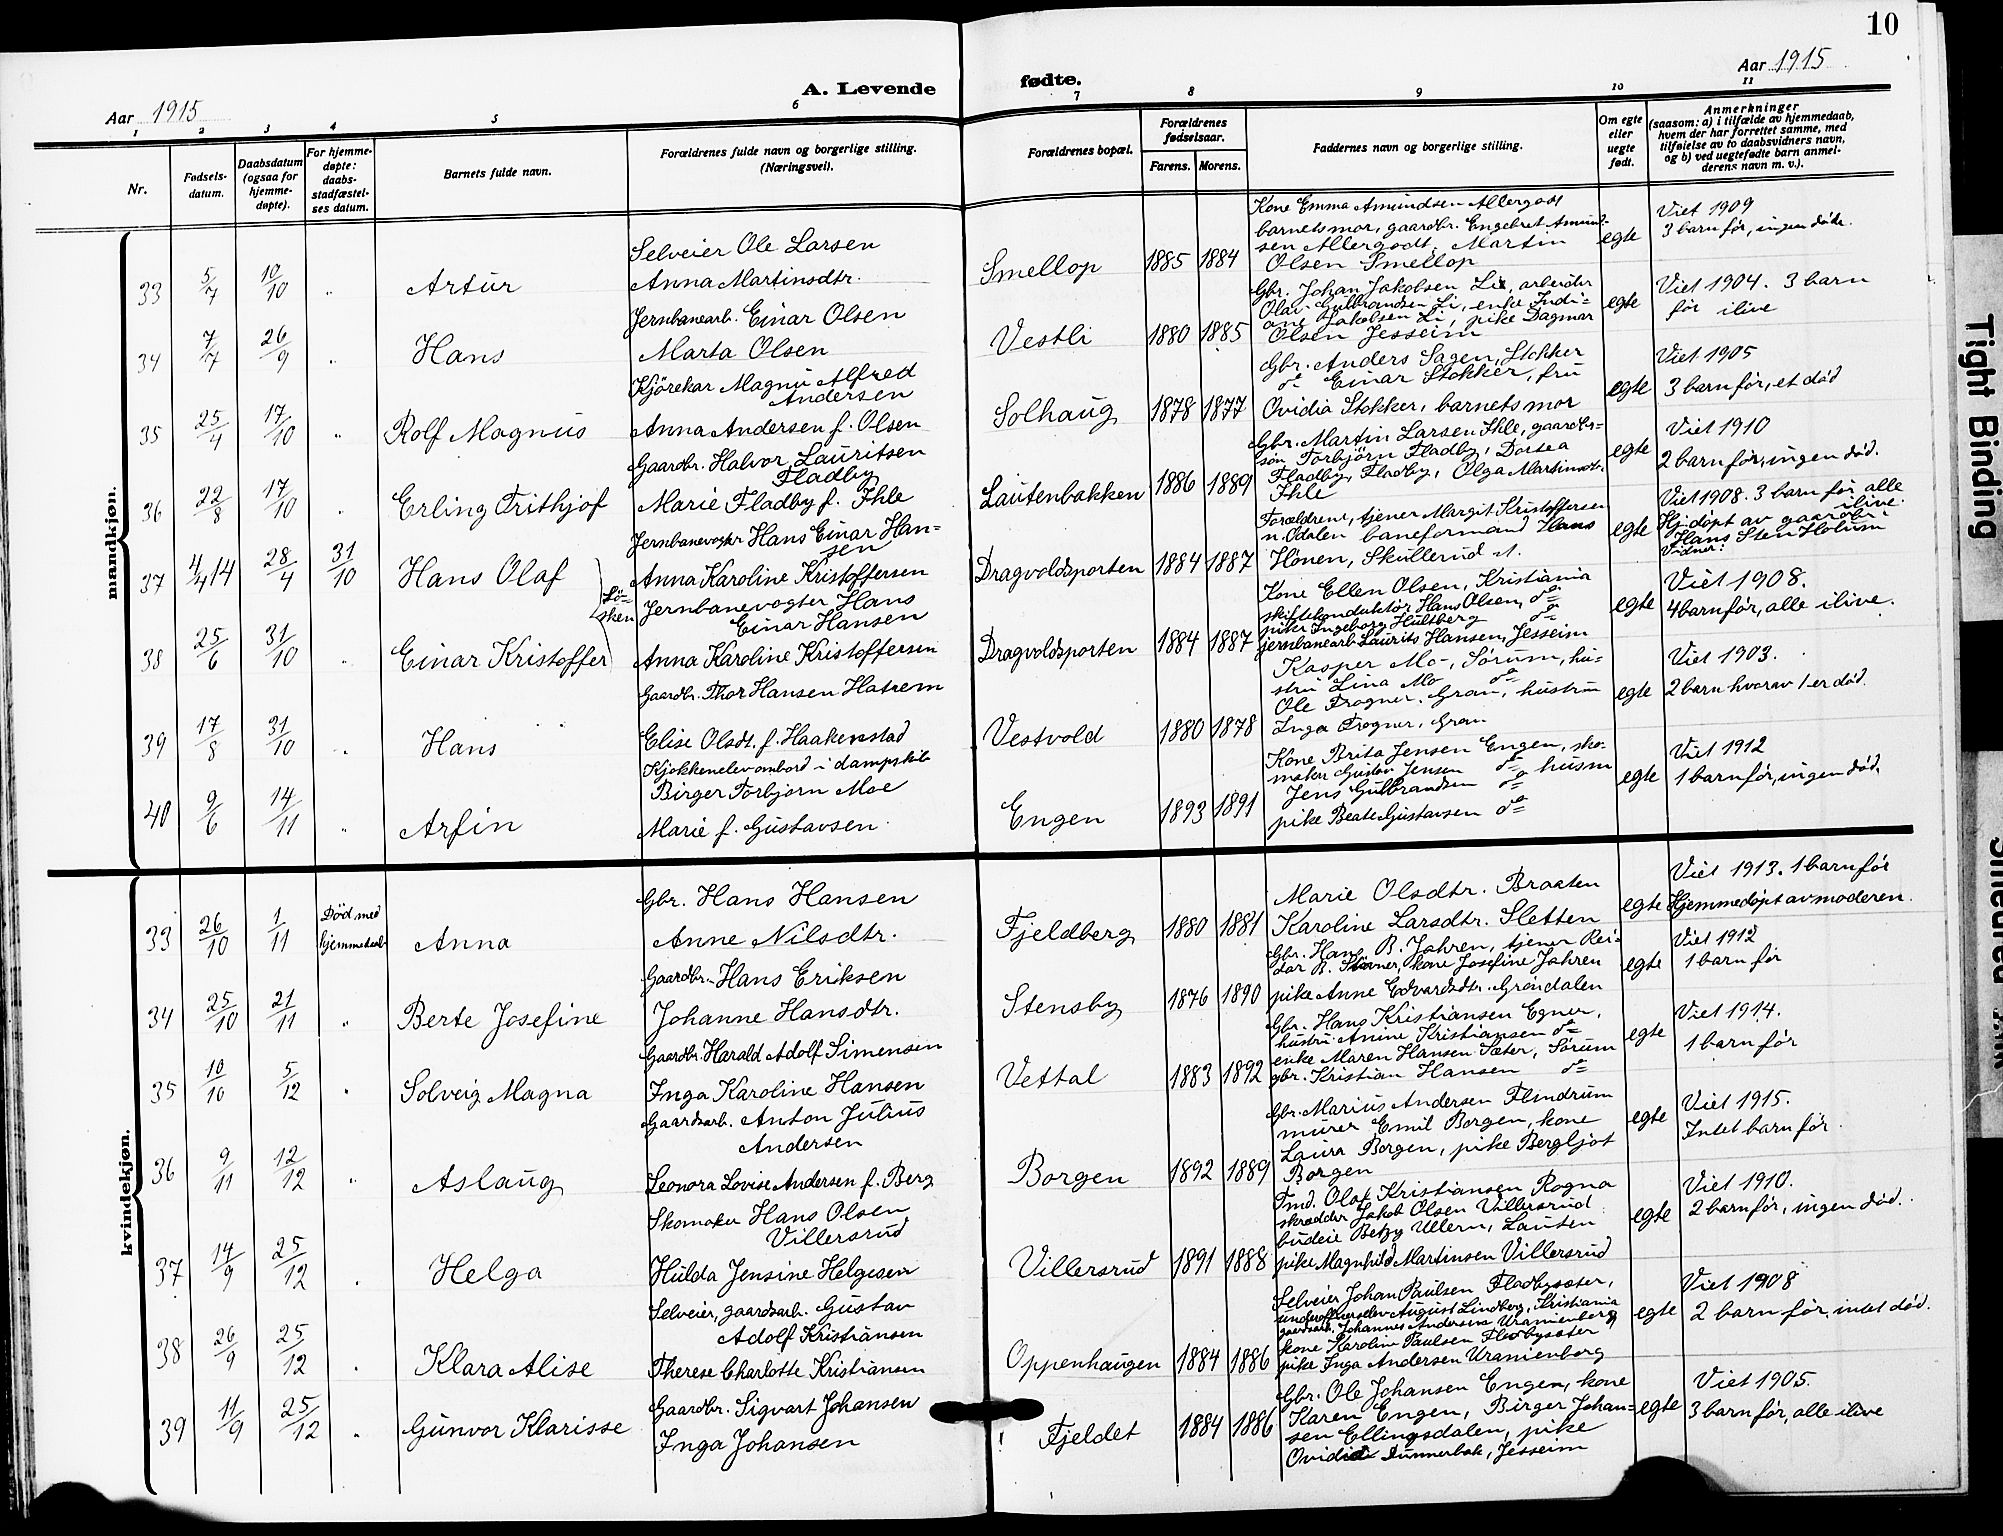 10
A. Levende fødte.
Aar 1915
Aar 1915
1 2 3 4 5 6 7 8 9 10 11
Nr.
Fødsels-
datum.
Daabsdatum
(ogsaa for
hjemme-
døpte).
For hjemme-
døpte:
daabs-
stadfæstel-
ses datum.
Barnets fulde navn.
Forældrenes fulde navn og borgerlige stilling.
(Næringsvei).
Forældrenes bopæl.
Forældrenes
fødselsaar.
Farens. Morens.
Faddernes navn og borgerlige stilling.
Om egte
eller
uegte
født.
Anmerkninger
(saasom: a) i tilfælde av hjemmedaab,
hvem der har forrettet samme, med
tilføielse av to daabsvidners navn,
og b) ved uegtefødte barn anmel-
derens navn m. v.).
mandkjøn.
33 5/7 10/10 " Artur
Selveier Ole Larsen
Anna Martinsdtr.
Smellop 1885 1884
Kone Emma Amundsen Allergodt
barnets mor, gaardbr. Engebret Amund-
sen Allergodt. Martin
Olsen Smellop
egte
Viet 1909
3 barn før, ingen døde.
34 7/7 26/9 " Hans
Jernbanearb. Einar Olsen
Marta Olsen
Vestli 1880 1885
Gbr. Johan Jakobsen Li, arbeider
Olav Gulbrandsen Li, enke Indi-
ane Jakobsen Li, pike Dagmar
Olsen Jesseim
egte
Viet 1904. 3 barn
før ilive
35 25/4 17/10 " Rolf Magnus
Kjörekar Magnus Alfred
Andersen
Anna Andersen f. Olsen
Solhaug 1878 1877
Gbr. Anders Sagen, Stokker
do Einar Stokker, fru
Ovidia Stokker, barnets mor
egte
Viet 1905
3 barn før, et död
36 22/8 17/10 " Erling Frithjof
Gaardbr. Halvor Lauritsen
Fladby
Marie Fladby f. Ihle
Lautenbakken 1886 1889
Gbr. Martin Larsen Ihle, gaardbr=
søn Torbjörn Fladby, Dortea
Fladby, Fladby, Olga Martinsdtr.
Ihle
egte
Viet 1910
2 barn før, ingen død.
37 4/4 14 28/4 31/10 Hans Olaf
Jernbanevogter Hans Einar Han=
sen
Anna Karoline Kristoffersen
Sö-
sken
Dragvoldsporten 1884 1887
Forældrene, tjener Margit Kristoffersen
n. Odalen baneformand Hans
Hönen, Skullerud st.
egte
Viet 1908. 3 barn før alle
ilive.
Hj.døpt av gaardbr.
Hans Sten Holum
Vidner:
38 25/6 31/10 " Einar Kristoffer
Jernbanevogter Hans
Einar Hansen
Anna Karoline Kristoffersen
Dragvoldsporten 1884 1887
Kone Ellen Olsen, Kristiania
skiftekonduktør Hans Olsen, do
pike Ingeborg Hultberg do
jernbanearb. Laurits Hansen, Jesseim
egte
Viet 1908.
4 barn før, alle ilive.
39 17/8 31/10 " Hans
Gaardbr. Thor Hansen Hatrem
Elise Olsdt. f. Haakenstad
Vestvold 1880 1878
Kasper Mo, Sørum, hu=
stru Lina Mo do
Ole Trogner. Gran, hustru
Inga Trogner, Gran
egte
Viet 1903.
2 barn hvorav 1 er død.
40 9/6 14/11 " Arfin
Kjøkkenelev ombord i dampskib
Birger Torbjørn Moe
Marie f. Gustavsen
Engen 1893 1891
Kone Brita Jensen Engen, sko-
maker Gustav Jensen do husm
Jens Gulbrandsen do
pike Beate Gustavsen do
egte
Viet 1912
1 barn før, ingen død.
kvindekjøn.
33 26/10 1/11 Død med
hjemmedaab Anna
Gbr. Hans Hansen
Anne Nilsdtr.
Fjeldberg 1880 1881
Marie Olsdtr. Braaten
Karoline Larsdtr. Sletten
egte
Viet 1913. 1 barn før
Hjemmedøpt av moderen.
34 25/10 21/11 " Berte Josefine
Gaardbr. Hans Eriksen
Johanne Hansdtr.
Stensby 1876 1890
Gbr. Hans B. Jahren, tjener Rei-
dar B. Stovner, kone Josefine Jahren
pike Anne Edvardsdtr. Grøndalen
egte
Viet 1912
1 barn før
35 10/10 5/12 " Solveig Magna
Gaardbr. Harald Adolf Simensen
Inga Karoline Hansen
Vettal 1883 1892
Gbr. Hans Kristiansen Egner,
hustru Anine Kristiansen do
enke Maren Hansen Sæter, Sørum
gbr. Kristian Hansen do
egte
Viet 1914.
1 barn før
36 9/11 12/12 " Aslaug
Gaardsarb. Anton Julius
Andersen
Leonora Lovise Andersen f. Berg
Borgen 1892 1889
Gbr. Marius Andersen Flindrum
murer Emil Borgen, kone
Laura Borgen, pike Bergljot
Borgen
egte
Viet 1915.
Intet barn før.
37 14/9 25/12 " Helga
Skomaker Hans Olsen
Villersrud
Hulda Jensine Helgesen
Villersrud 1891 1888
Tmd. Olaf Kristiansen Rogna
skrædder Jakob Olsen Villersrud
budeie Betzy Ullern, Lauten
pike Magnhild Martinsen Villersrud
egte
Viet 1910.
2 barn før, ingen død.
38 26/9 25/12 " Klara Alise
Selveier, gaardsarb. Gustav
Adolf Kristiansen
Therese Charlotte Kristiansen
Oppenhaugen 1884 1886
Selveier Johan Paulsen Fladbysæter,
underofficerselev August Lindberg, Kristiania
gaardsarb. Johannes Andersen Uranienborg
kone Karoline Paulsen Fladbysæter
pike Inga Andersen Uranienborg
egte
Viet 1908
2 barn før, intet død.
39 11/9 25/12 " Gunvor Klarisse
Gaardbr. Sigvart Johansen
Inga Johansen
Fjeldet 1884 1886
Gbr. Ole Johansen Engen, kone
Karen Engen, Birger Johan=
sen Ellingsdalen, pike
Ovidia Dunnerbak, Jesseim
egte
Viet 1905.
3 barn før, alle ilive
Tight Binding